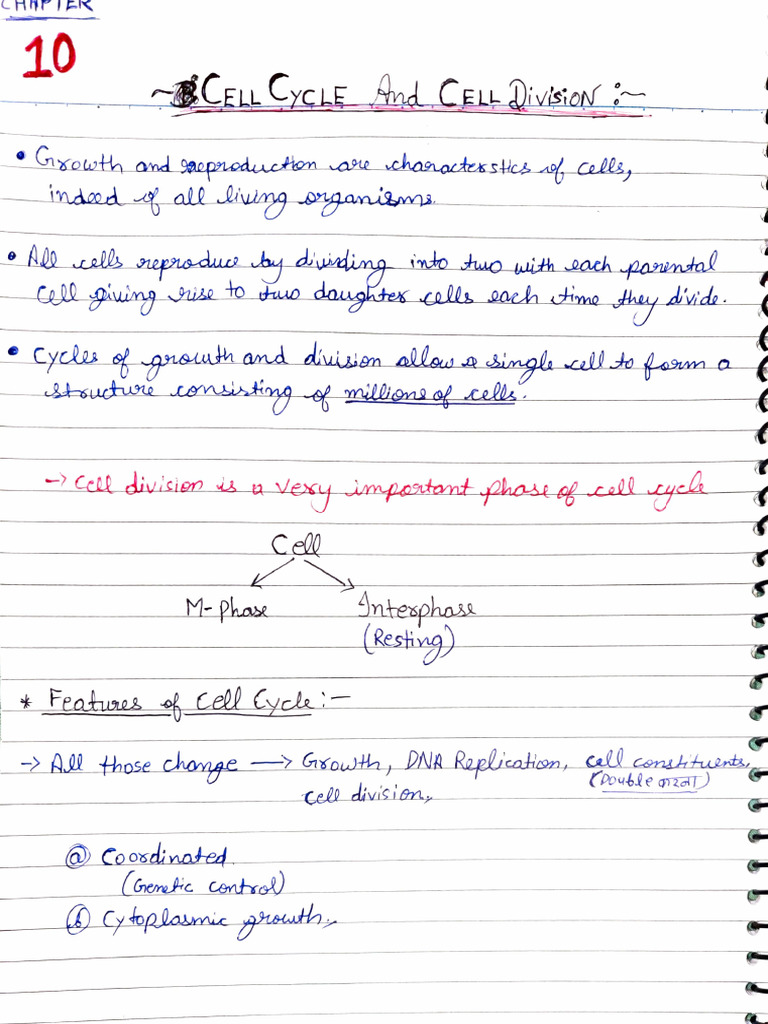 CHAPTER
10
~ CELL CYCLE And CELL Division :~
• Growth and reproduction are characterstics of cells,
indeed of all living organisms.
• All cells reproduce by dividing into two with each parental
cell giving rise to two daughter cells each time they divide.
• Cycles of growth and division allow a single cell to form a
structure consisting of millions of cells.
-> Cell division is a very important phase of cell cycle
Cell
M-Phase Interphase
(Resting)
* Features of Cell Cycle :-
-> All those change -> Growth, DNA Replication, cell constituents,
(Double करना)
cell division,
(a) Coordinated
(Genetic control)
(b) Cytoplasmic growth,